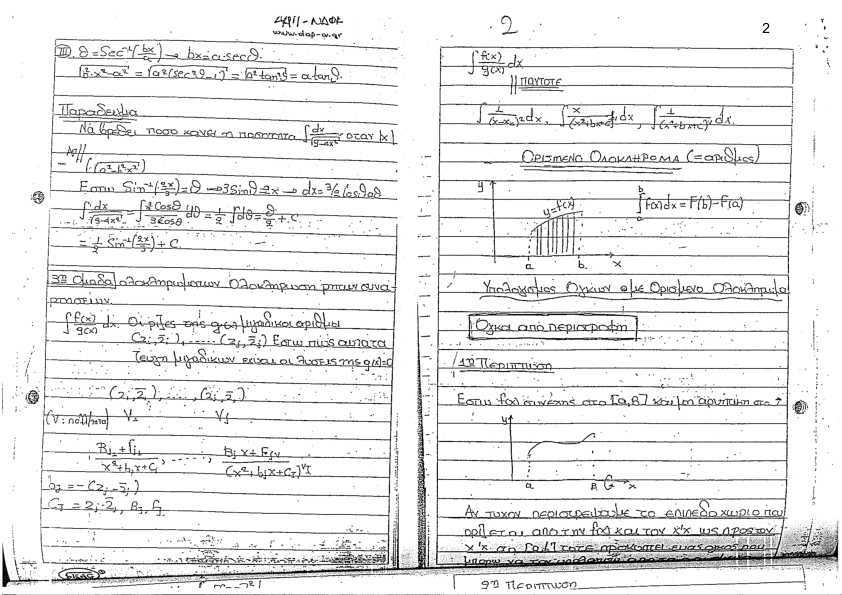 4ΑΠ-ΝΔΦΚ
www.dap-oi.gr
III. θ=Sec⁻¹(bx/a) → bx=a·secθ.
√(b²·x²-a²) = √(a²(sec²θ-1)) = √(a²tan²θ) = a tanθ.
Παραδειγμα
Να βρεθει ποσο κανει η ποσοτητα ∫dx/√(9-4x²) οταν |x|
Απ//
(√(a²-b²x²))
Εστω Sin⁻¹(2x/3)=θ → 3Sinθ=2x → dx=3/2 Cosθdθ
∫dx/√(9-4x²) = ∫(3/2 Cosθ)/(3Cosθ) dθ = 1/2 ∫dθ = θ/2 + C.
= 1/2 Sin⁻¹(2x/3) + C
3η Ομαδα ολοκληρωματων Ολοκληρωση ρητων συνα-
ρτησεων.
∫f(x)/g(x) dx. Οι ριζες της g ειν μιγαδικοι αριθμοι
(z₁, z̄₁), ..... (zⱼ, z̄ⱼ) Εστω πως αυτα τα
ζευγη μιγαδικων ειναι οι λυσεις της g(x)=0
(z₁, z̄₁), ...., (zⱼ, z̄ⱼ)
V₁ Vⱼ
x²+b₁x+C₁, ......, Bⱼx+Γⱼᵥ/(x²+bⱼx+Cⱼ)
bⱼ=-(zⱼ+z̄ⱼ)
Cⱼ=zⱼ·z̄ⱼ, Bⱼ, Γⱼ
2
2
∫f(x)/g(x) dx
// ΠΑΝΤΟΤΕ
∫1/(x-x₀)² dx, ∫x/(x²+bx+c)ⁿ dx, ∫1/(x²+bx+c)ⁿ dx.
ΟΡΙΣΜΕΝΟ ΟΛΟΚΛΗΡΩΜΑ (=αριθμος)
y
y=f(x)
∫ₐᵇ f(x)dx = F(b)-F(a)
a b x
Υπολογισμος Ογκων με Ορισμενο Ολοκληρωμα
Όγκοι από περιστροφή
1η Περιπτωση
Εστω f(x) συνεχης στο [a,B] και μη αρνητικη στο
y
a B x
Αν τυχον περιστρεψουμε το επιπεδο χωριο που
οριζεται απο την f(x) και τον x'x ως προς τον
x'x στο [a,B] τοτε προκυπτει ενας ογκος που
2η Περιπτωση